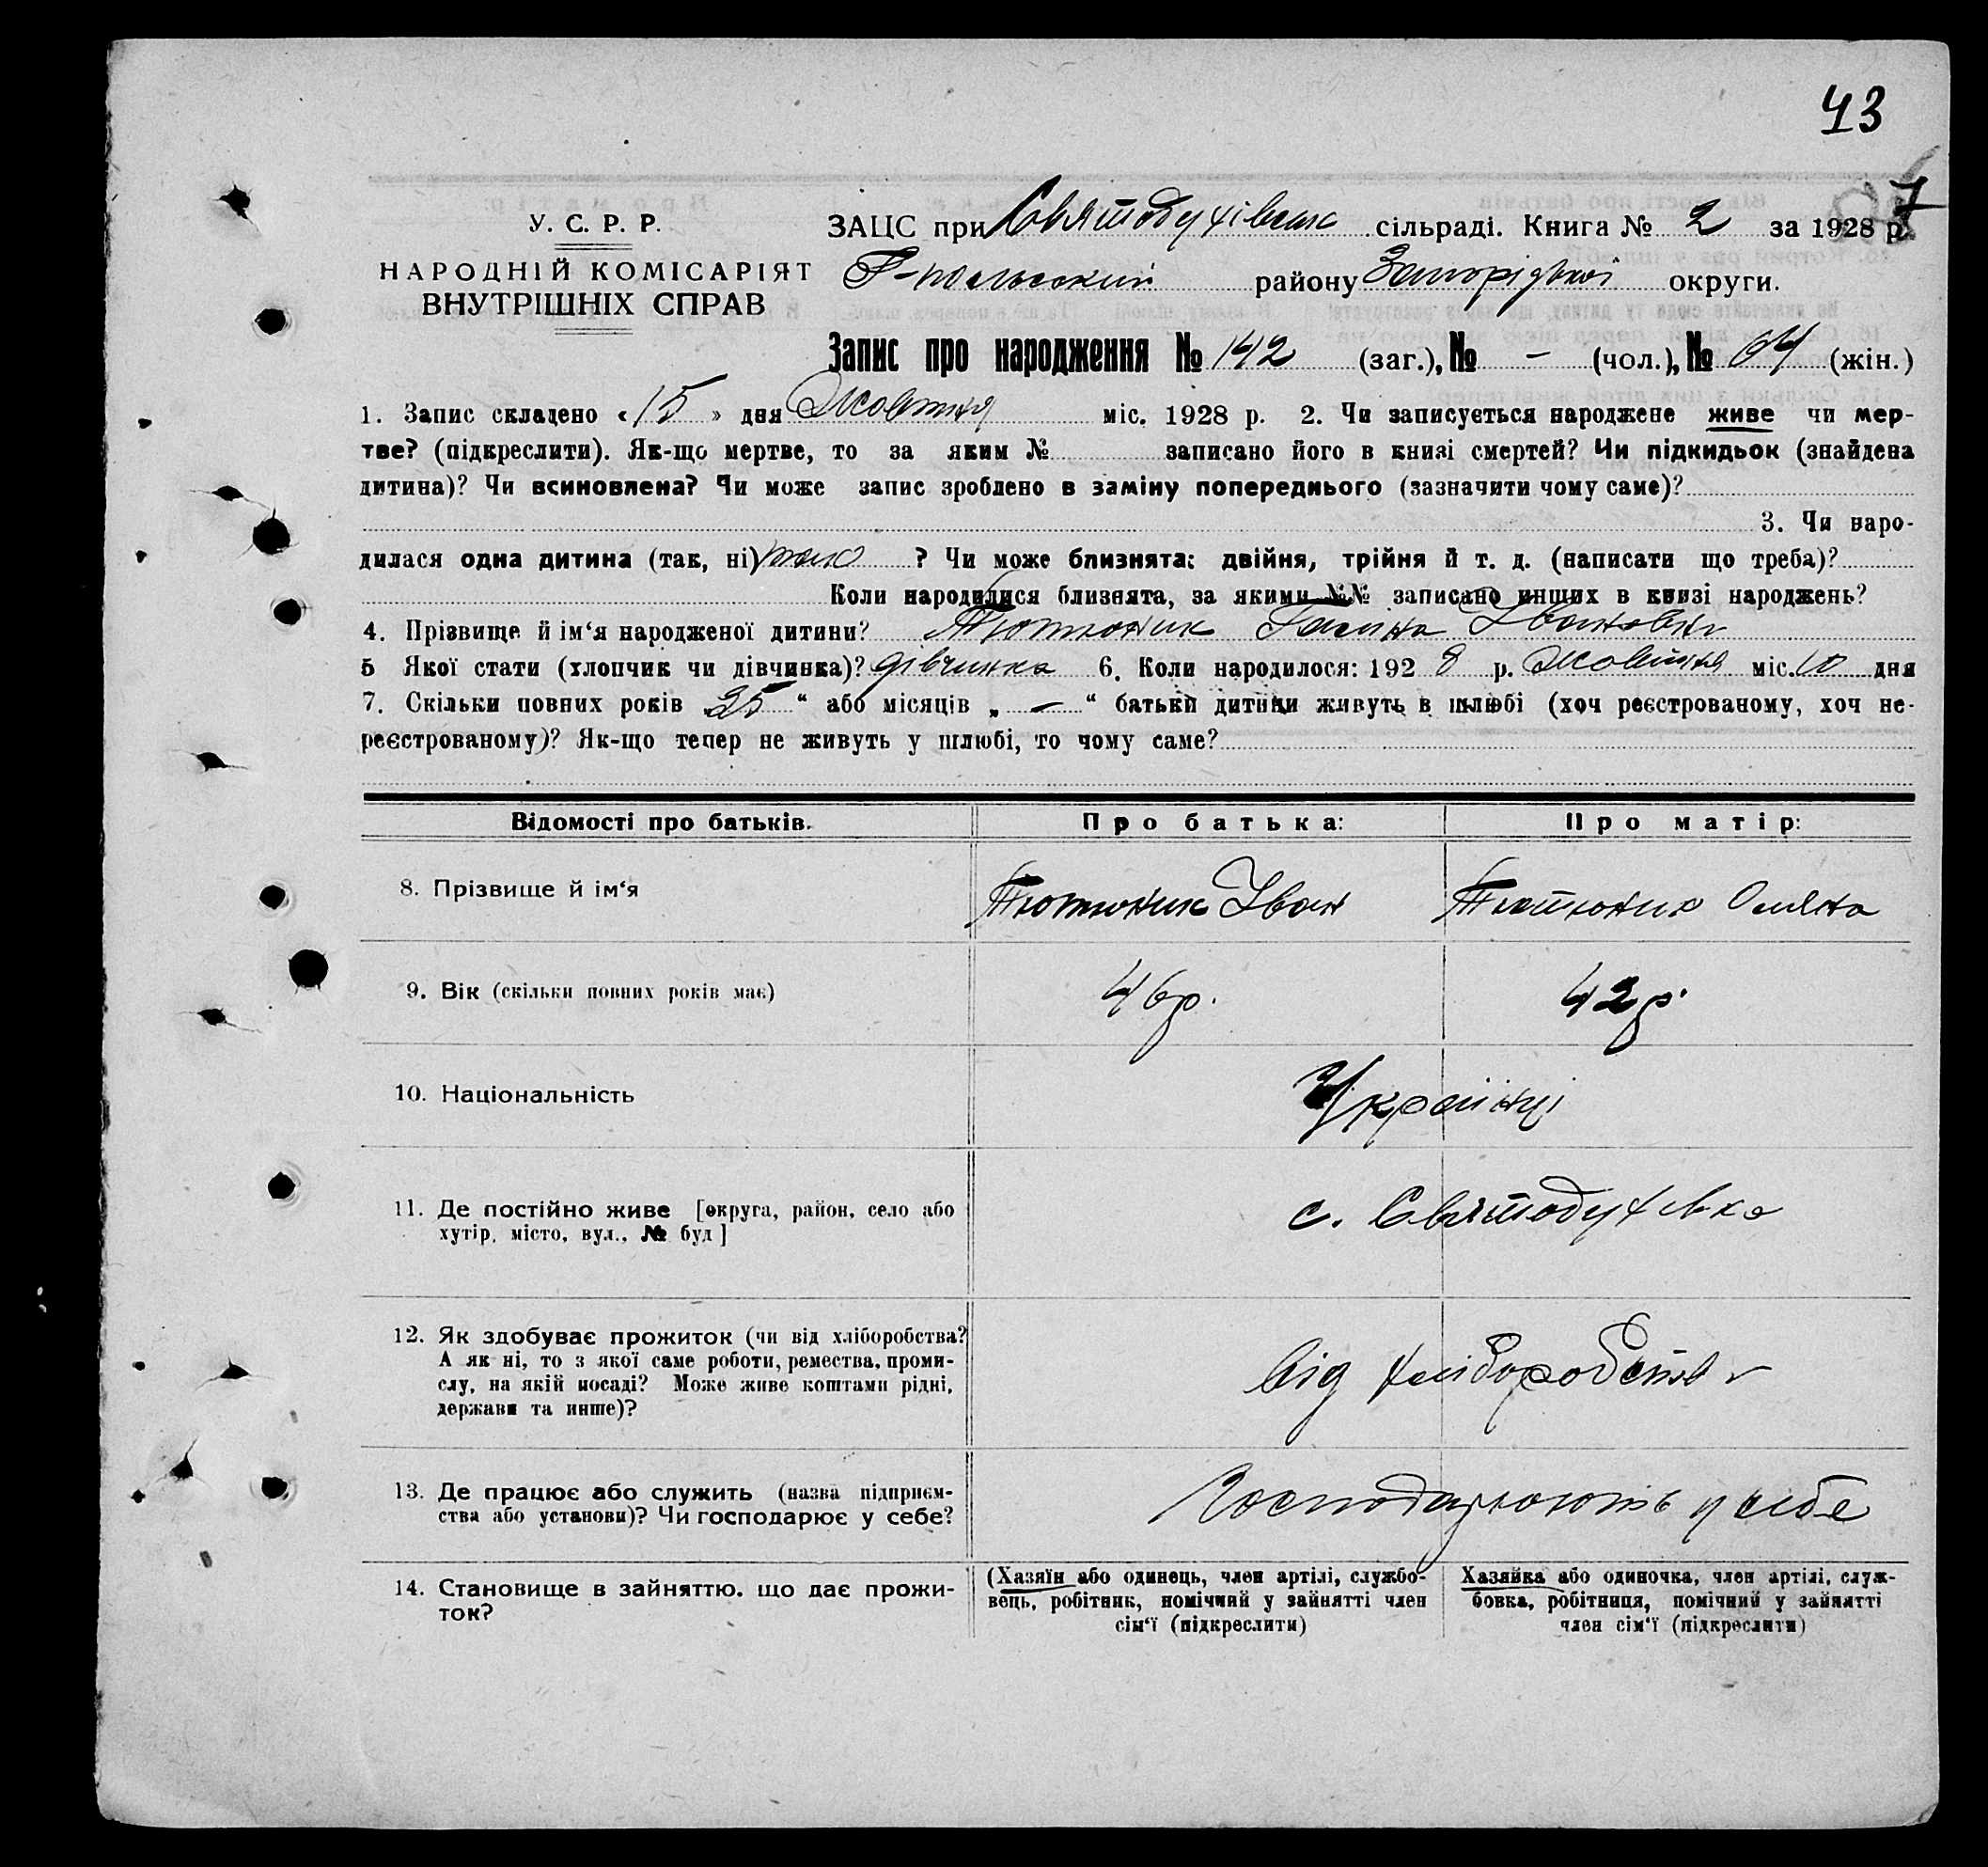 43
7
У. С. Р. Р.
НАРОДНІЙ КОМІСАРІЯТ
ВНУТРІШНІХ СПРАВ
ЗАЦС при Святодухівськ сільраді. Книга № 2 за 1928 р.
району Запорізької округи.
Запис про народження № 142 (заг.), № – (чол.), № 64 (жін.)
1. Запис складено «15» дня Жовтня міс. 1928 р. 2. Чи записується народжене живе чи мер-
тве? (підкреслити). Як-що мертве, то за яким № записано його в книзі смертей? Чи підкидьок (знайдена
дитина)? Чи всиновлена? Чи може запис зроблено в заміну попереднього (зазначити чому саме)?
3. Чи наро-
дилася одна дитина (так, ні) так ? Чи може близнята: двійня, трійня й т. д. (написати що треба)?
Коли народилися близнята, за якими №№ записано инших в книзі народжень?
4. Прізвище й ім‘я народженої дитини? Тютюник Галина Івановна
5 Якої стати (хлопчик чи дівчинка)? дівчинка 6. Коли народилося: 192 8 р. Жовтня міс. 10 дня
7. Скільки повних років 25 “ або місяців „ – “ батьки дитини живуть в шлюбі (хоч реєстрованому, хоч не-
реєстрованому)? Як-що тепер не живуть у шлюбі, то чому саме?
Відомості про батьків. Про батька: Про матір:
8. Прізвище й ім‘я Тютюник Іван Тютюник Оляна
9. Вік (скільки повних років має) 46 р. 42 р.
10. Національність Українці
11. Де постійно живе [округа, район, село або
хутір, місто, вул., № буд ] с. Святодухівка
12. Як здобуває прожиток (чи від хліборобства?
А як ні, то з якої саме роботи, ремества, проми-
слу, на якій посаді? Може живе коштами рідні,
держави та инше)? від хліборобства
13. Де працює або служить (назва підприєм-
ства або установи)? Чи господарює у себе? Господарюють у себе
14. Становище в зайняттю. що дає прожи-
ток?
(Хазяїн або одинець, член артілі, службо-
вець, робітник, помічний у зайнятті член
сім‘ї (підкреслити)
Хазяйка або одиночка, член артілі, служ-
бовка, робітниця, помічний у зайнятті
член сім‘ї (підкреслити)